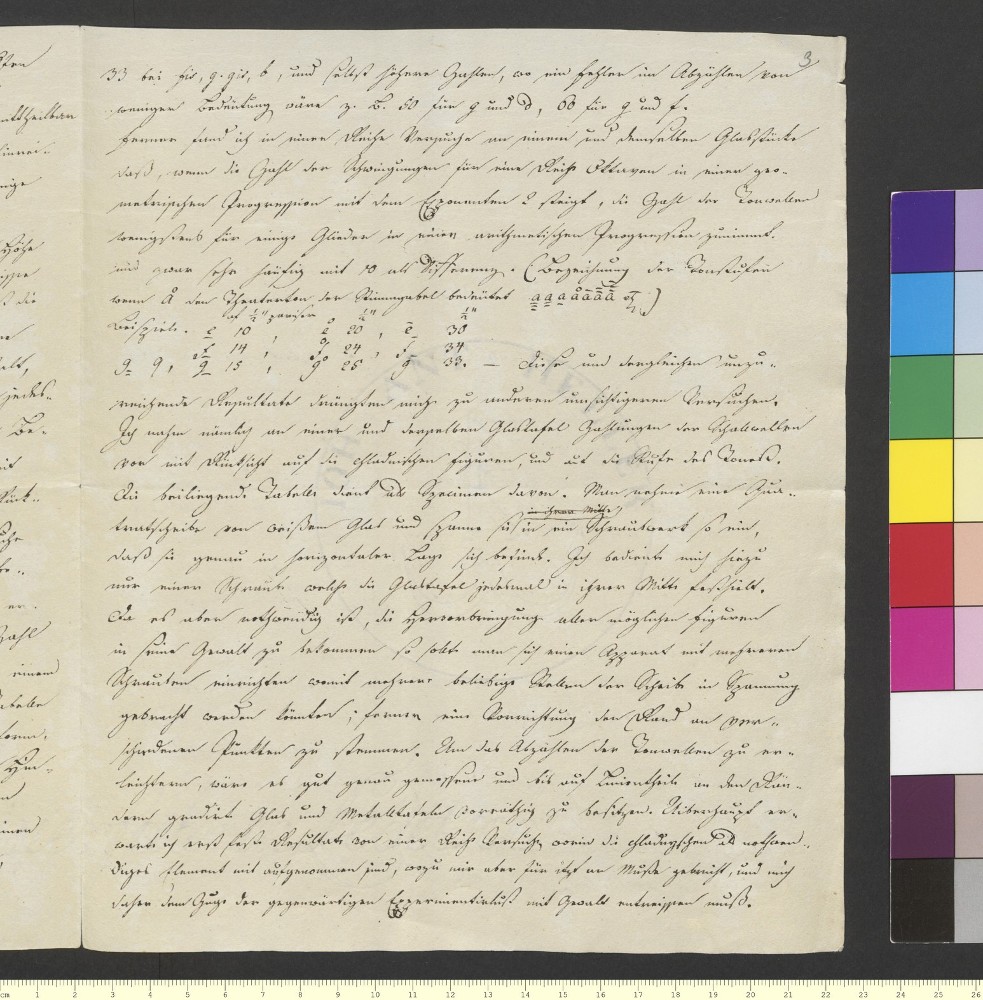 3
33 bei fis, g. gis, b, und selbst höhere Zahlen, wo ein Fehler im Abzählen von
weniger Bedeutung wäre z. B. 50 für g und d, 66 für g und f.
Ferner fand ich in einer Reihe Versuche an einem und demselben Glasstücke
daß, wenn die Zahl der Schwingungen für eine Reihe Oktaven in einer geo-
metrischen Progression mit dem Exponenten 2 steigt, die Zahl der Tonwellen
wenigstens für einige Glieder in einer arithmetischen Progression zunimmt.
und zwar sehr häufig mit 10 als Differenz. (Bezeichnung der Tonstufen
wenn a den Theaterton der Stimmgabel bedeutet a a a a a a a )
auf ½" pariser ½" ½"
Beispiele. e 10 e 20, e 30
f 14, f 24, f 34
g 9, g 15, g 25 g 33. — Diese und dergleichen unzu-
reichende Resultate drängten mich zu anderen umsichtigeren Versuchen.
Ich nahm nämlich an einer und derselben Glastafel Zahlungen der Schallwellen
vor mit Rücksicht auf die chladnischen Figuren, und auf die Stufe des Tones.
Die beiliegende Tabelle dient als Specimen davon. Man nehme eine Qua-
in ihrer Mitte
tratscheibe von weißem Glas und spanne sie in ein Schraubwerk so ein,
daß sie genau in horizontaler Lage sich befinde. Ich bediente mich hiezu
nur einer Schraube welche die Glastafel jedesmal in ihrer Mitte festhielt.
Da es aber nothwendig ist, die Hervorbringung aller möglichen Figuren
in seine Gewalt zu bekommen so sollte man sich einen Apparat mit mehreren
Schrauben einrichten womit mehrere beliebige Stellen der Scheibe in Spannung
gebracht werden könnten; ferner eine Vorrichtung den Rand an ver-
schiedenen Punkten zu stemmen. Um das Abzählen der Tonwellen zu er-
leichtern, wäre es gut genau gemessene und bis auf Linientheile an den Rän-
dern gradirte Glas und Metalltafeln vorräthig zu besitzen. Überhaupt er-
warte ich erst feste Resultate von einer Reihe Versuche, worin die chladnyschen als nothwen-
diges Element mit aufgenommen sind, wozu mir aber für itzt an Muße gebricht, und mich
daher dem Zuge der gegenwärtigen Experimentirlust mit Gewalt entreissen muß.